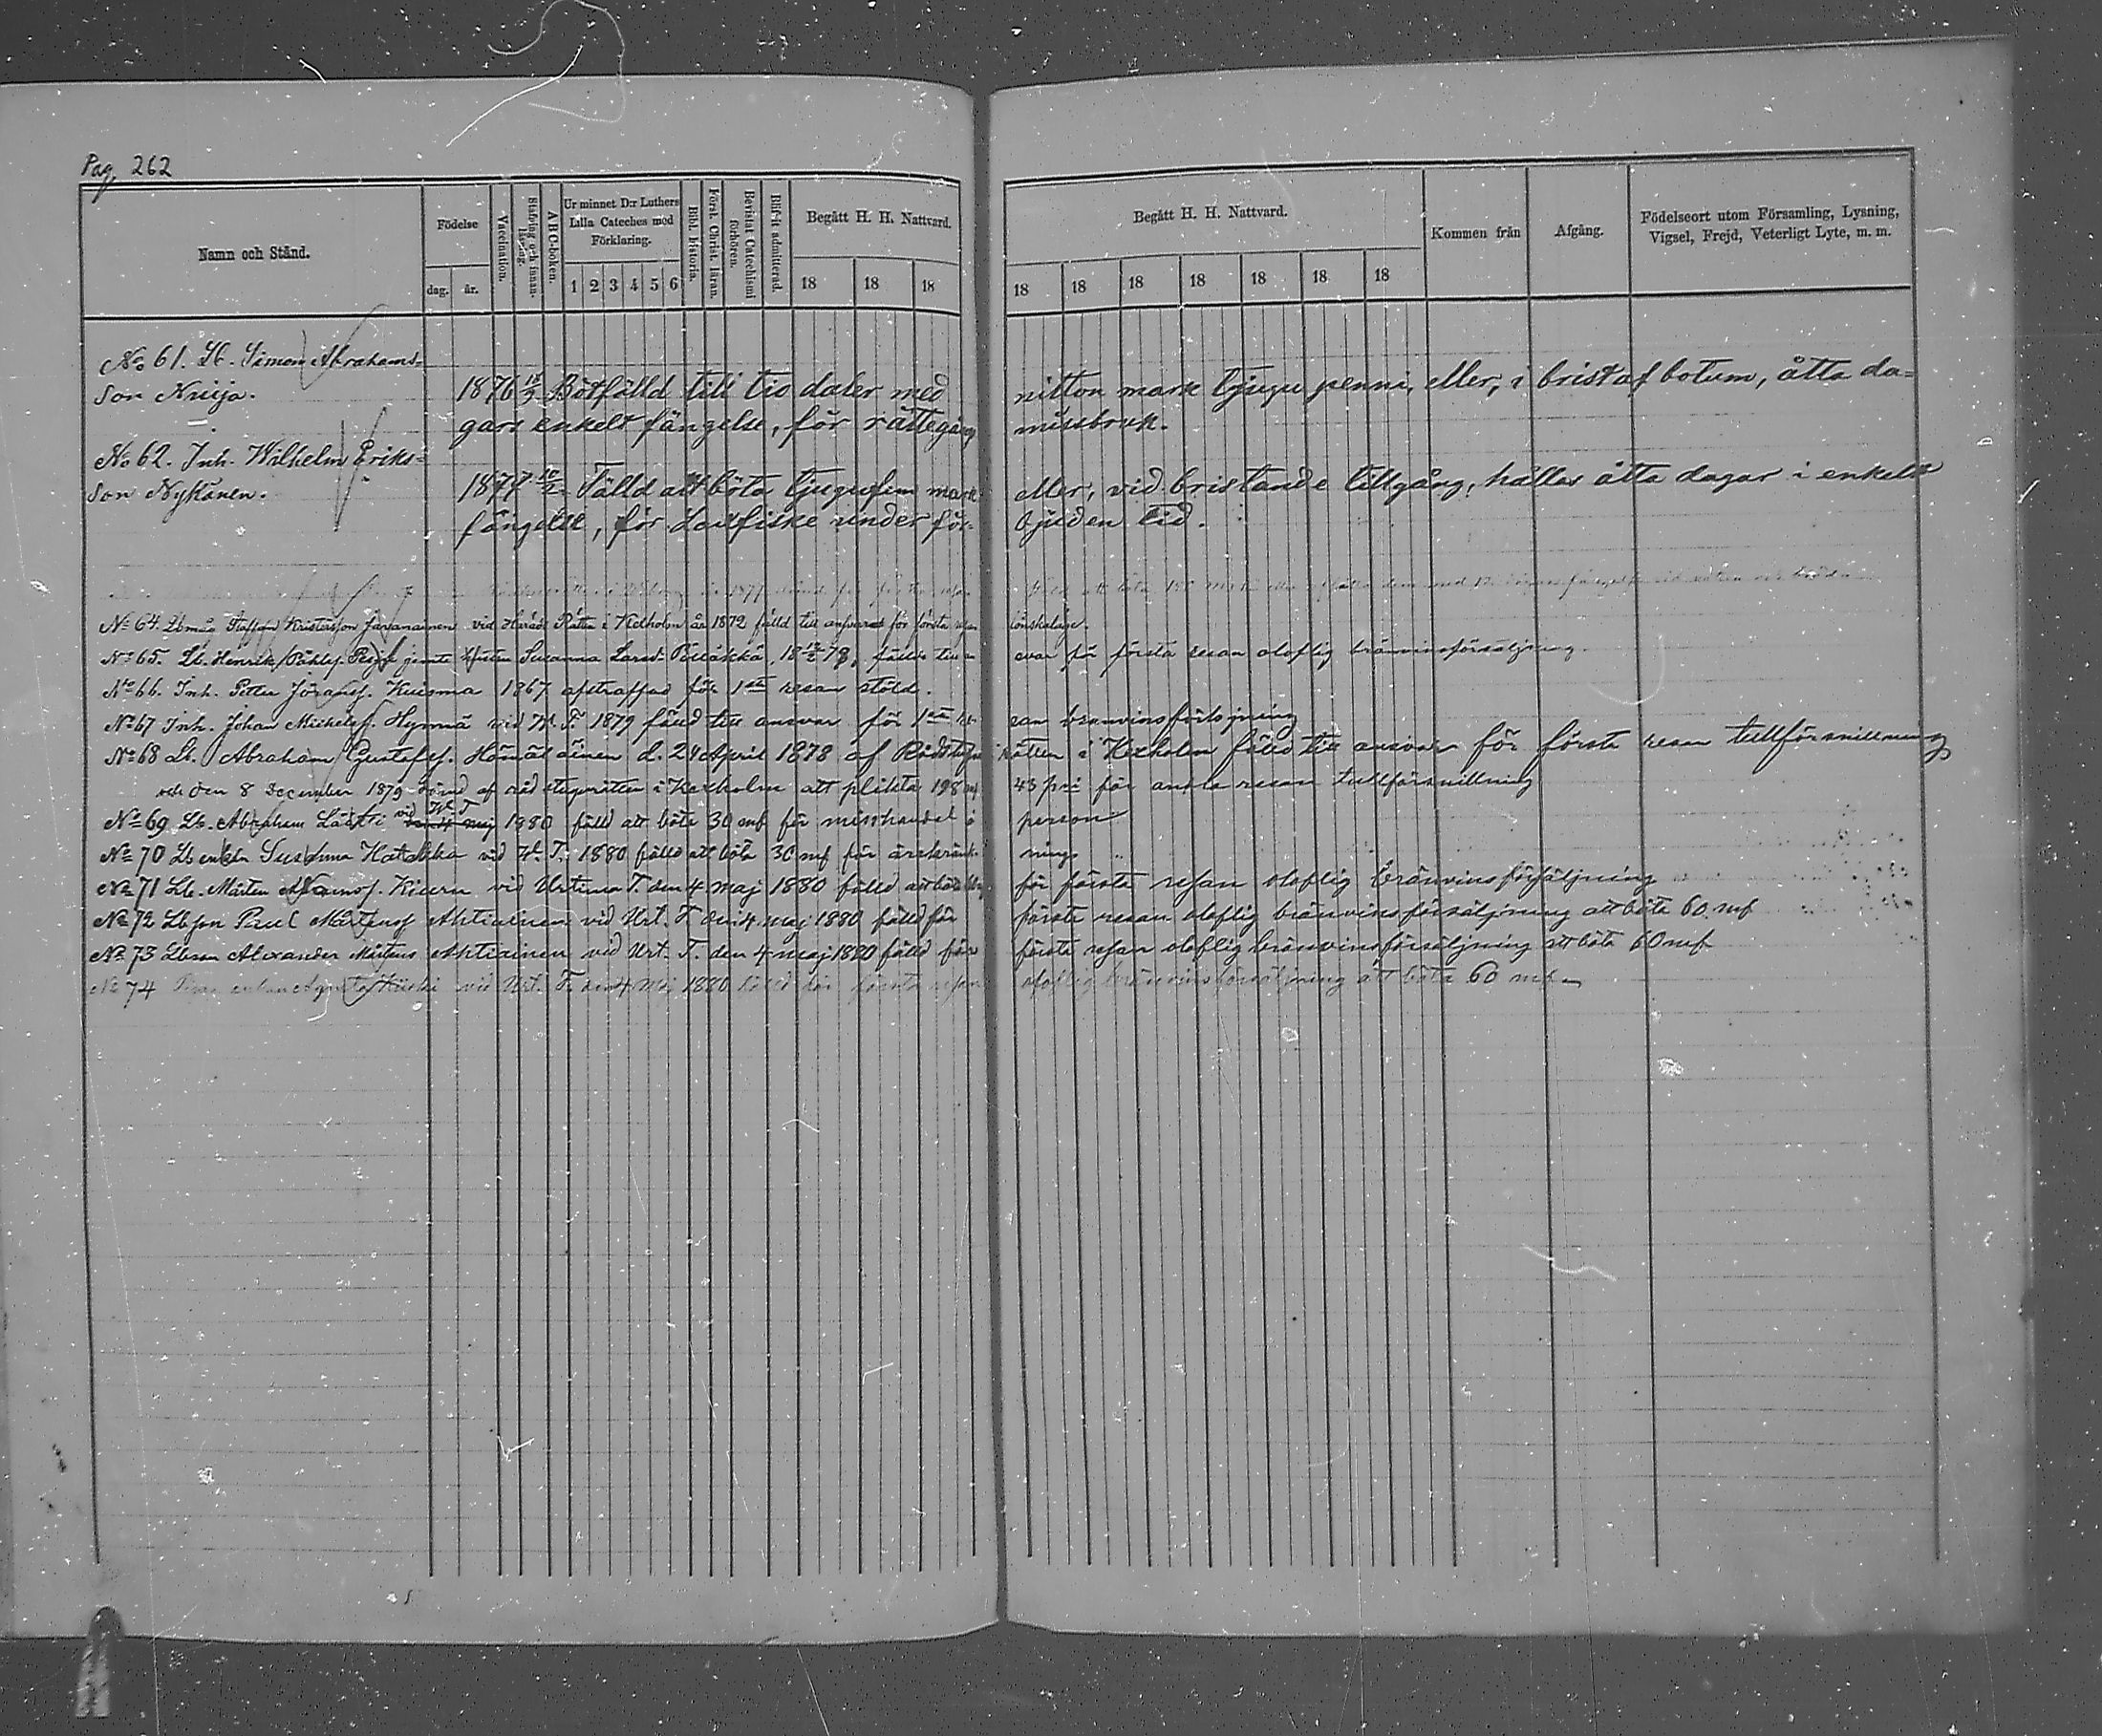 Pag. 262
Namn och Stånd.
Födelse
dag. år.
Vaccination.
Stafning och innan-läsning.
A B C-boken.
Ur minnet D:r Luthers Lilla Cateches med Förklaring.
1 2 3 4 5 6
Bibl. historia.
Först. Christ. läran.
Bevistat Catechismi förhören.
Blifvit admitterad.
Begått H. H. Nattvard.
18 18 18
Begått H. H. Nattvard.
18 18 18 18 18 18 18
Kommen från
Afgång.
Födelseort utom Församling, Lysning, Vigsel, Frejd, Veterligt Lyte, m. m.
No 61. Lb. Simon Abrahams-
son Kriija. 1876 Botfälld till tio daler med nitton mark tjugu penni, eller, i brist af botum, åtta da-
gars enkelt fängelse, för rättegång missbruk.
No 62. Inh. Wilhelm Eriks-
son Nykänen. 1877 Fälld att böta tjugufem mark eller, vid bristande tillgång, hållas åtta dagar i enkelt
fängelse, för Laxfiske under för- bjuden tid.
No 64. Kristersson Javanainen vid Härads Rätten i Kexholm år 1872 fälld till ansvar för första resan lönskaläge.
No 65. Lb. Henrik Påhls. jemte hustru Susanna Larsd. 1878, fällde till an- svar för första resan oloflig bränvinsförsäljning.
No 66. Inh. Petter Göransf. Kuisma 1867 afstraffad för 1sta resan stöld.
No 67 Inh. Johan Michelsf. Hynnä vid W. T. 1879 fälld till ansvar för 1sta re- san bränvinsförsäljning
No 68 Lb. Abraham Gustafsf. Hämäläinen d. 24 April 1878 af Rådstugu rätten i Kexholm fälld till ansvar för första resan tullförsnillning
och den 8 December 1879 dömd af rådstugurätten i Kexholm att plikta 198 mf 43 pni för andra resan tullförsnillning
No 69 Lb. Abraham vid W. T. 1880 fälld att böta 30 mf för misshandel å person
No 70 Lb enkan Susanna vid W. T. 1880 fälld att böta 30 mf för ärekränk- nings
No 71 Lb. Mårten vid Urtima T. den 4 maj 1880 fälld att böta för första resan oloflig bränvinsförsäljning
No 72 Lbson Paul Mårtensf Ahtiainen vid Urt. T. den 4 maj 1880 fälld för första resan oloflig bränvinsförsäljning att böta 60 mf
No 73 Lbson Alexander Mårtens Ahtiainen vid Urt. T. den 4 maj 1880 fälld för första resan oloflig bränvinsförsäljning att böta 60 mf
No 74 enkan vid Urt. T. den 4 Maj 1880 fälld för första resan oloflig bränvinsförsäljning att böta 60 mf